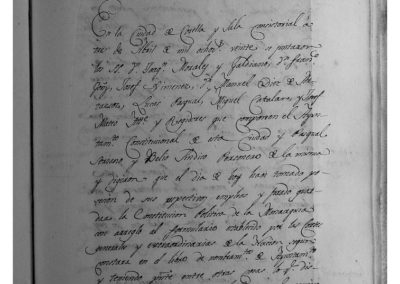 En la Ciudad de Corella y Sala consistorial a
tres de Abril de mil ochos. veinte se juntaron
los SS. Dn. Josef Morales y Galdiano, Dn. Juan
Josef Ximenez, Manuel Diez de
Lucas Pasqual, Miguel Catalan, y Josef
Mateo y Regidores que componen el Ayun
tam. Constitucional de esta Ciudad y Pasqual
Serrano y Pelio Sindico Personero de la misma
y dijeron que el dia de hoy han tomado po
sesion de sus respectivos empleos y jurado guar
dar la Constitucion Politica de la Monarquia
con arreglo al formulario establecido por las Cortes
generales y extraordinarias de la Nacion, segun
constara en el libro de nombram. de Ayuntam.
y teniendo entre otras cosas lo q. dis